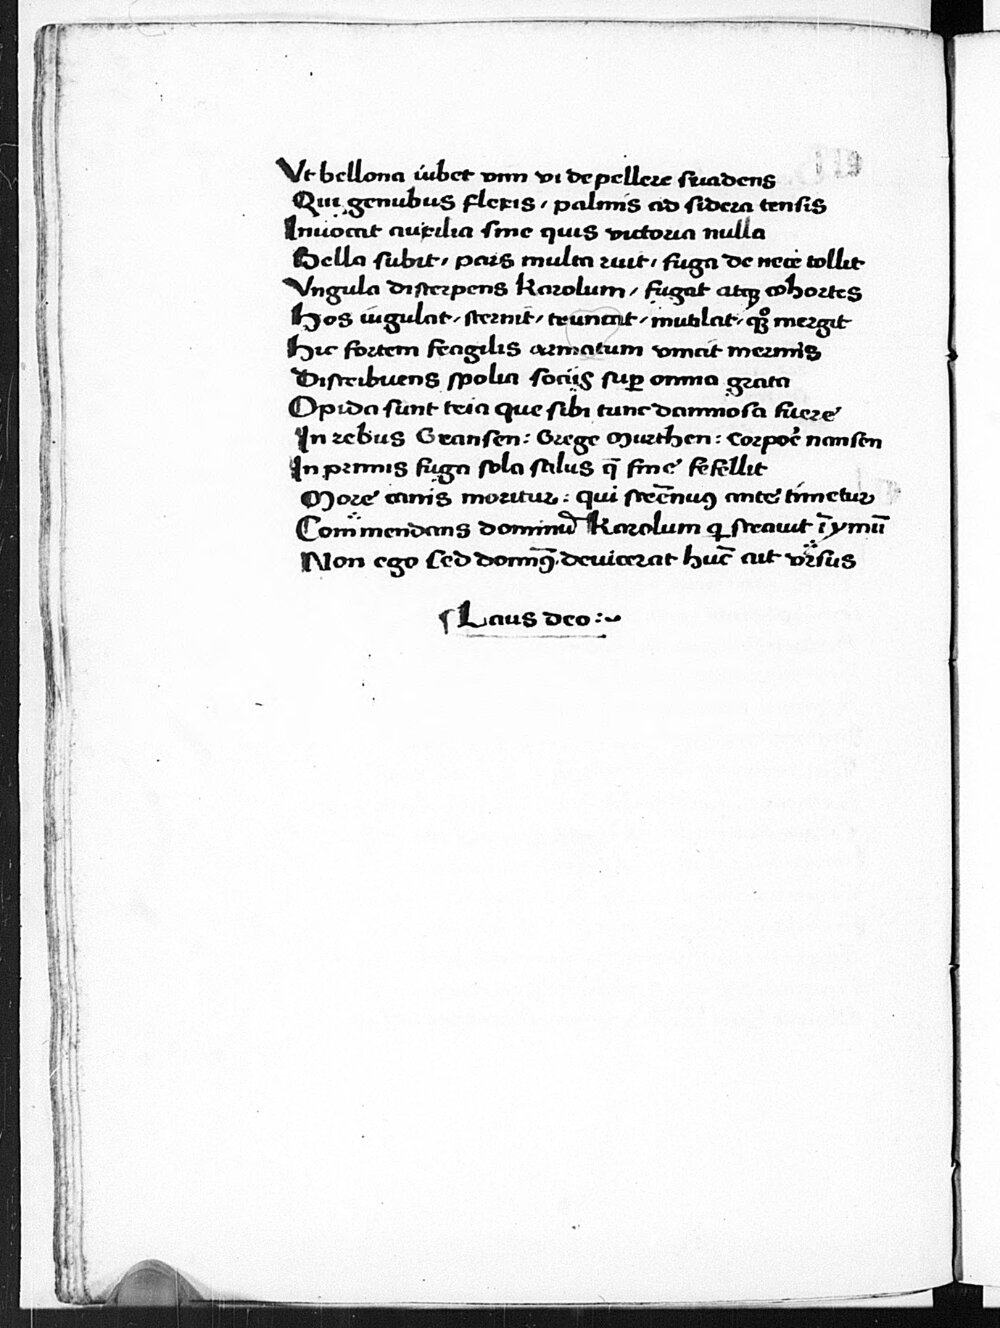 Vt bellona iubet vim vi depellere suadens
Qui genubus flexis / palmis ad sidera tensis
Inuocat auxilia sine quis victoria nulla
Bella subit / pars multa ruit / fuga de nece tollit
Vngula discerpens Karolum / fugat atqꝫ cohortes
Hos iugulat / sternit / truncat / mutilat / mergit
Hic fortem fragilis armatum vincit inermis
Distribuens spolia socijs suꝑ omnia grata
Opida sunt tria que sibi tunc damnosa fuere
In rebus Gransen : Grege Murthen : corpore nansen
In primis fuga sola salus q̄ fine fefellit
More canis moritur : qui strēnuꝯ ante timetur
Commendans dominū Karolum ꝗ strauit īymicū
Non ego sed dominꝰ deuicerat hūc ait vrsus
Laus deo :~